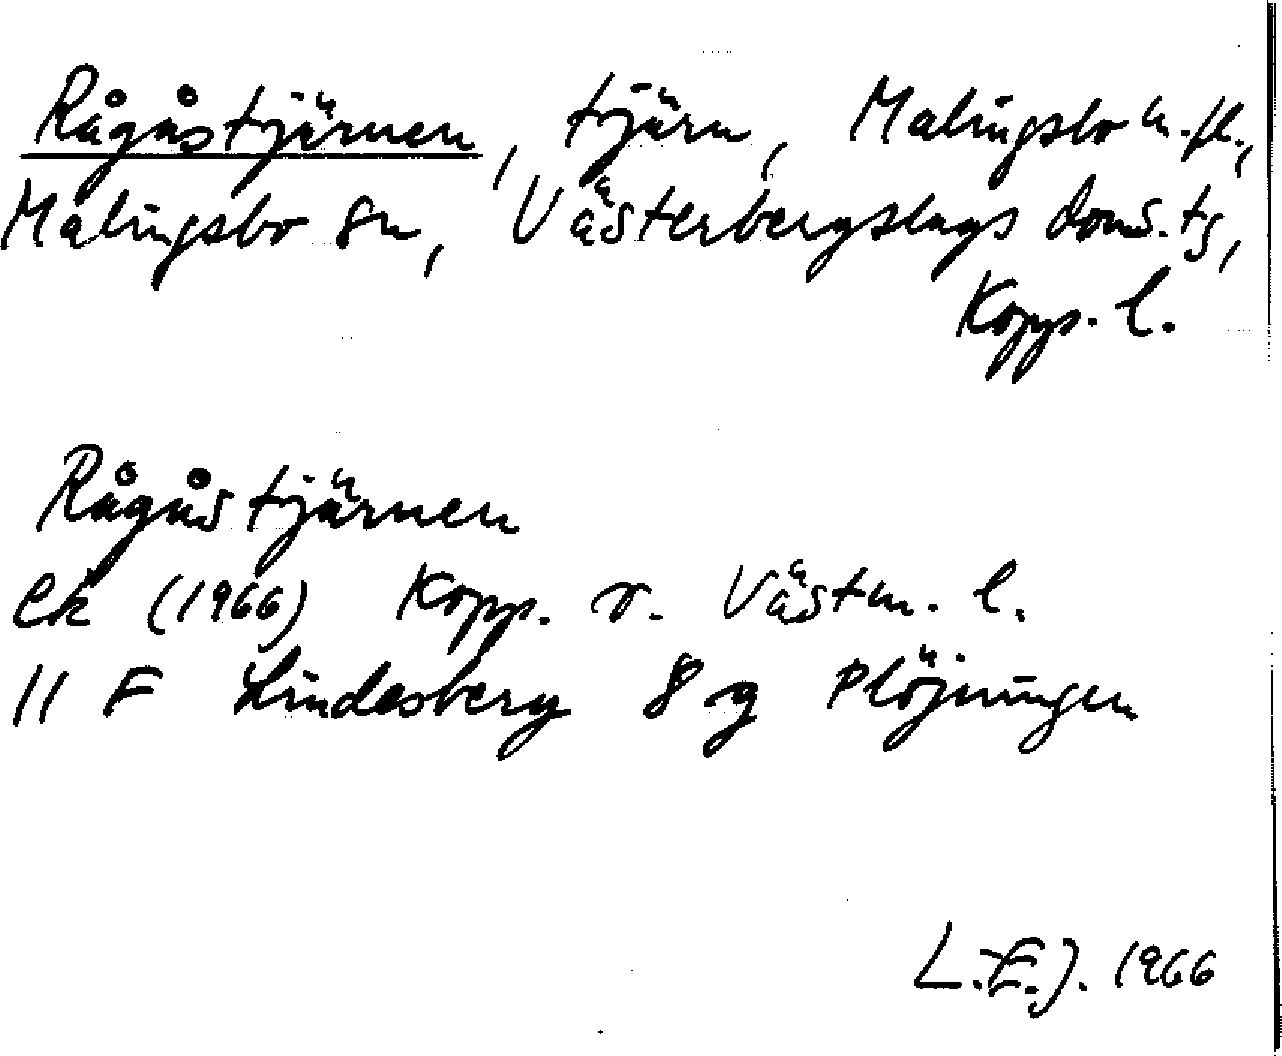 Rågåstjärnen, tjärn, Malingsbo m.fl.,
Malingsbo sn, Västerbergslags doms.tg,
Kopp. l.
Rågåstjärnen
Ek (1966) Kopp. o. Västm. l.
11 F Lindesberg 8 g Plöjningen
L.E.J. 1966